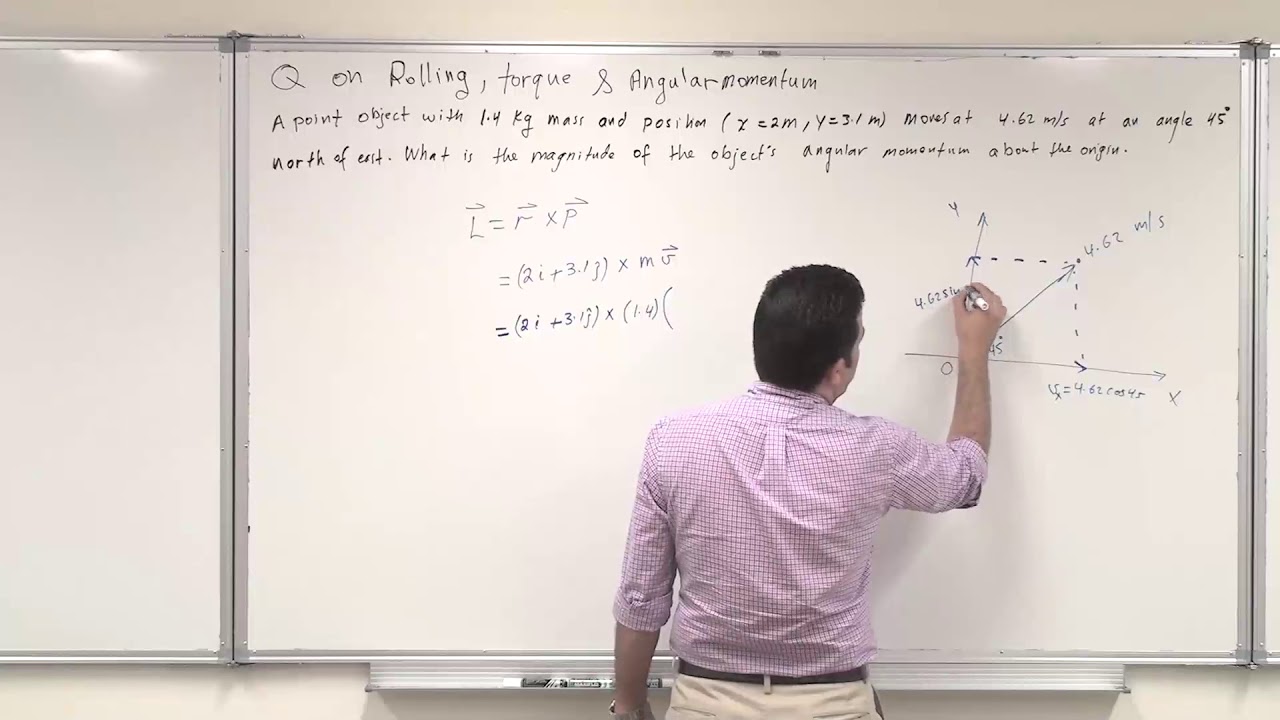 Q on Rolling, torque & Angular momentum
A point object with 1.4 kg mass and position (x=2m, y=3.1m) moves at 4.62 m/s at an angle 45°
north of east. What is the magnitude of the object's angular momentum about the origin.
L⃗ = r⃗ × P⃗
= (2i+3.1ĵ) × m v⃗
= (2i+3.1ĵ) × (1.4)(
Y
4.62 m/s
4.62sin
45
O
vx=4.62cos45
X